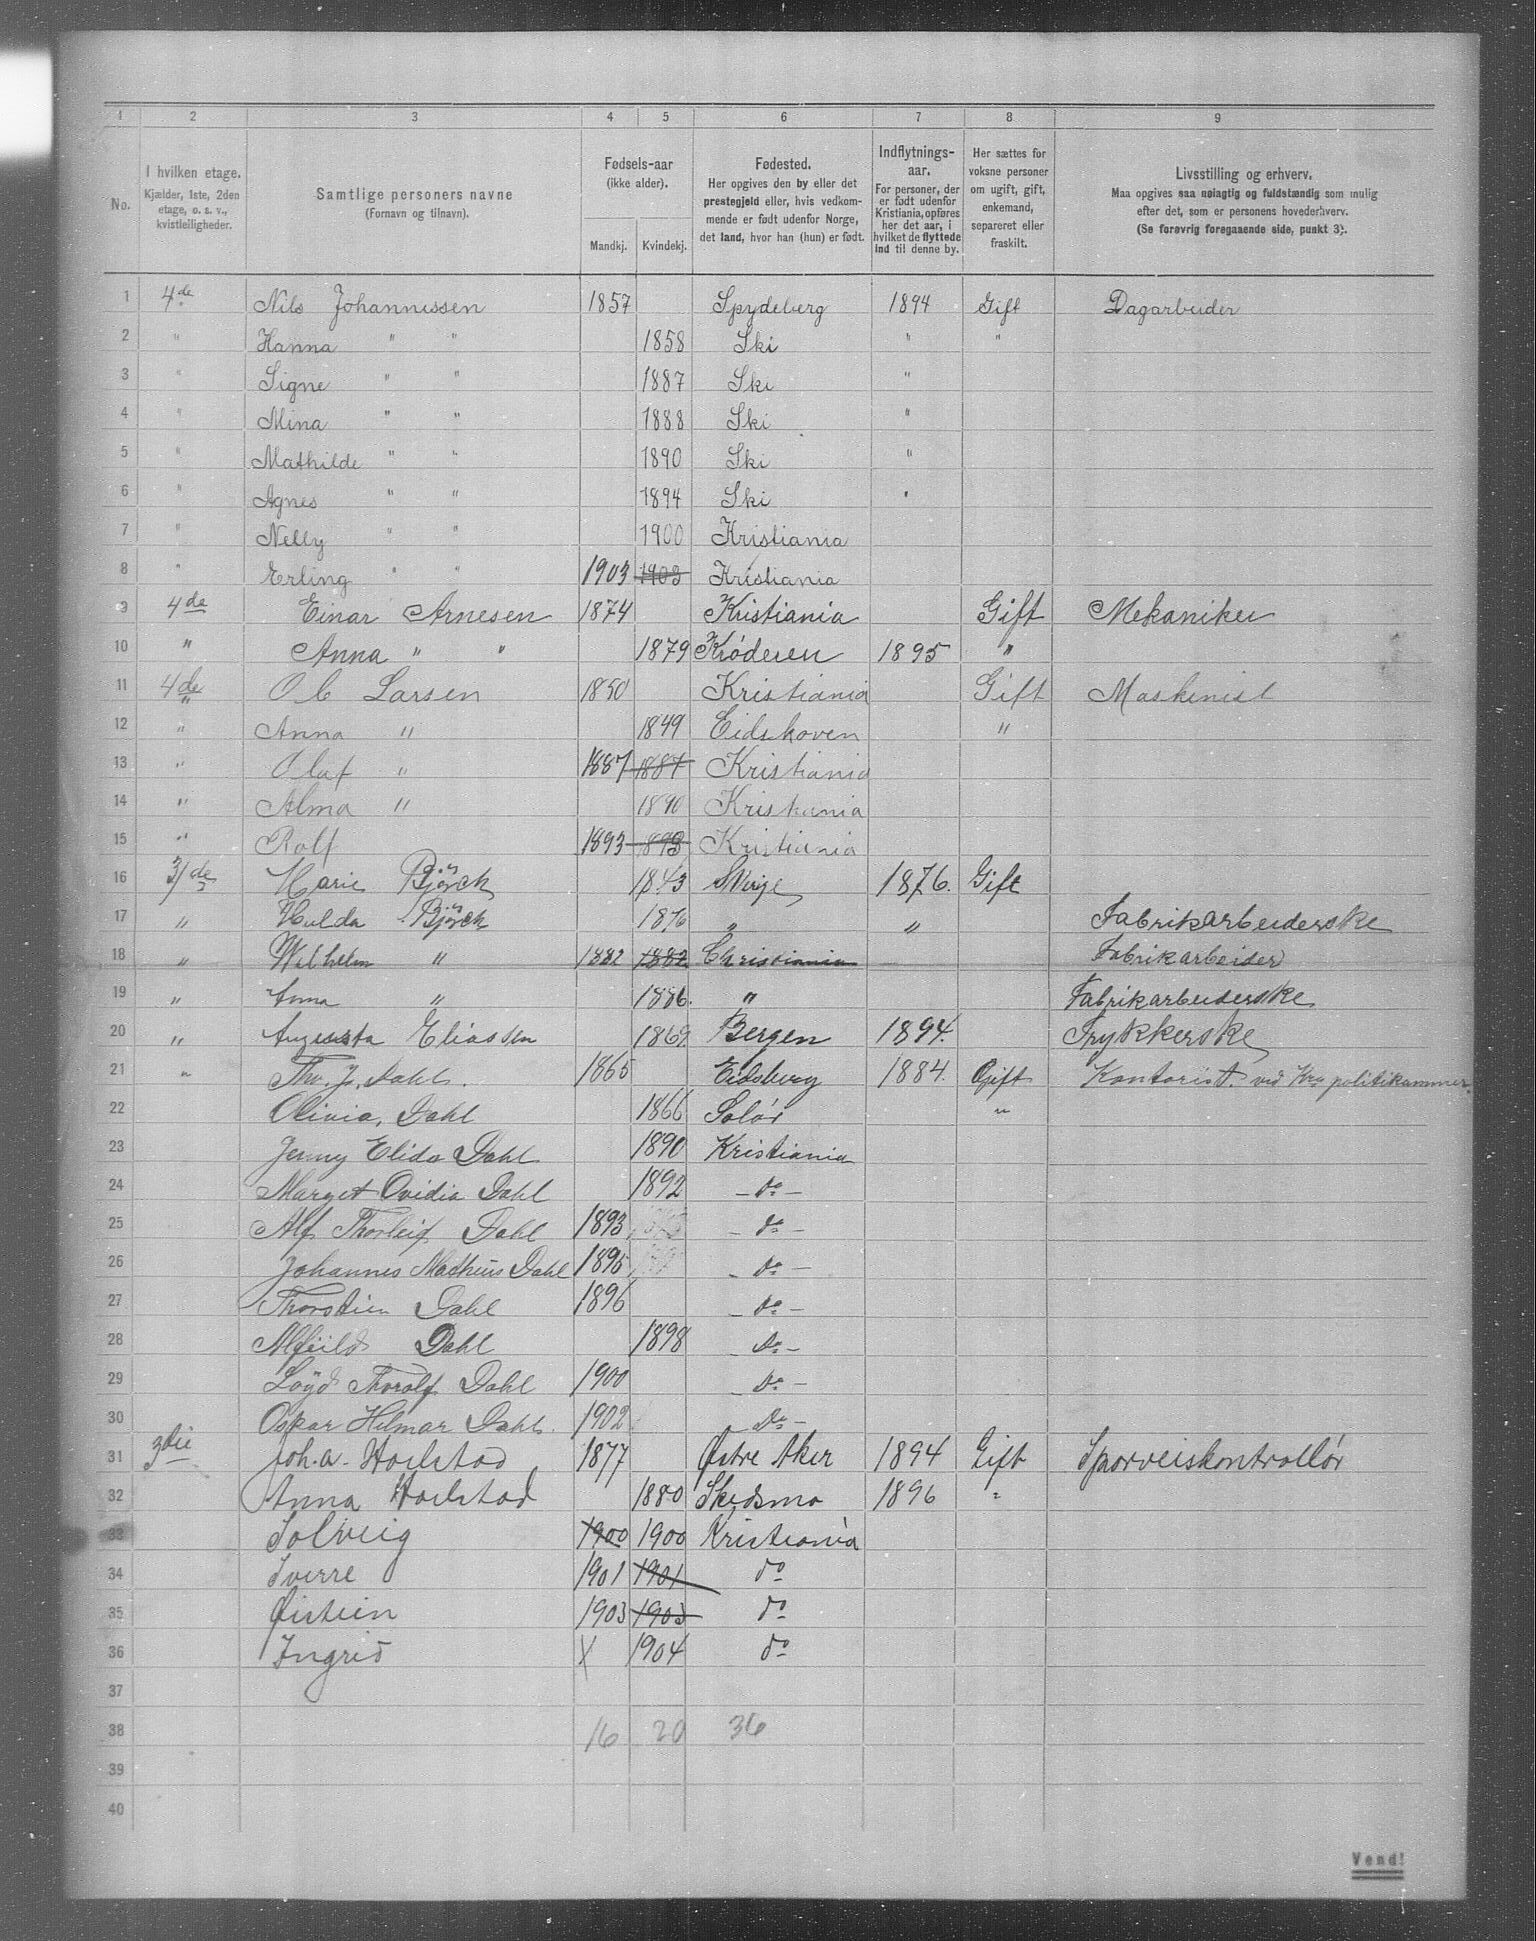 1 2 3 4 5 6 7 8 9
No. I hvilken etage. Kjælder, 1ste, 2den etage, o. s. v., kvistleiligheder. Samtlige personers navne (Fornavn og tilnavn). Fødsels-aar (ikke alder). Mandkj. Kvindekj. Fødested. Her opgives den by eller det prestegjeld eller, hvis vedkommende er født udenfor Norge, det land, hvor han (hun) er født. Indflytnings-aar. For personer, der er født udenfor Kristiania, opføres her det aar, i hvilket de flyttede ind til denne by. Her sættes for voksne personer om ugift, gift, enkemand, separeret eller fraskilt. Livsstilling og erhverv. Maa opgives saa nøiagtig og fuldstændig som mulig efter det, som er personens hovederhverv. (Se forøvrig foregaaende side, punkt 3).
1 4de Nils Johannessen 1857 Spydeberg 1894 Gift Dagarbeider
2 " Hanna " " 1858 Ski " "
3 " Signe " " 1887 Ski "
4 " Mina " " 1888 Ski "
5 " Mathilde " " 1890 Ski "
6 " Agnes " " 1894 Ski "
7 " Nelly " " 1900 Kristiania
8 " Erling " " 1903 1903 Kristiania
9 4de Einar Arnesen 1874 Kristiania Gift Mekaniker
10 " Anna " " 1879 Krøderen 1895 "
11 4de O C Larsen 1850 Kristiania Gift Maskinist
12 " Anna " 1849 Eidskoven "
13 " Olaf " 1887 1887 Kristiania
14 " Alma " 1890 Kristiania
15 " Rolf 1893 1893 Kristiania
16 3/de Marie Björck 1843 Sverige 1876. Gift
17 " Hulda Björck 1876 " " Fabrikarbeiderske
18 " Wilhelm " 1882 1882 Christiania Fabrikarbeider
19 " Anna " 1886. " Fabrikarbeiderske
20 " Augusta Eliassen 1869. Bergen 1894. Trykkerske
21 " Thv. J. Dahl. 1865 Eidsberg 1884. Gift Kontorist. ved Kra politikammer
22 Olivia, Dahl 1866 Solör "
23 Jenny Elida Dahl 1890 Kristiania
24 Marget Ovidia Dahl 1892 - do -
25 Alf Thorleif Dahl 1893 - do -
26 Johannes Mathæus Dahl 1895 - do -
27 Thorstein Dahl 1896 - do -
28 Alfhild Dahl 1898 - do -
29 Loyd Thorolf Dahl 1900 - do -
30 Oskar Hilmar Dahl. 1902 - do -
31 3die Joh. a. Hoelstad 1877 Østre Aker 1894 Gift Sporveiskontrollør
32 Anna Hoelstad 1880 Skedsmo 1896 "
33 Solveig 1900 1900 Kristiania
34 Sverre 1901 1901 do
35 Øistein 1903 1903 do
36 Ingrid X 1904 do
37
38 16 20 36
39
40
Vend!